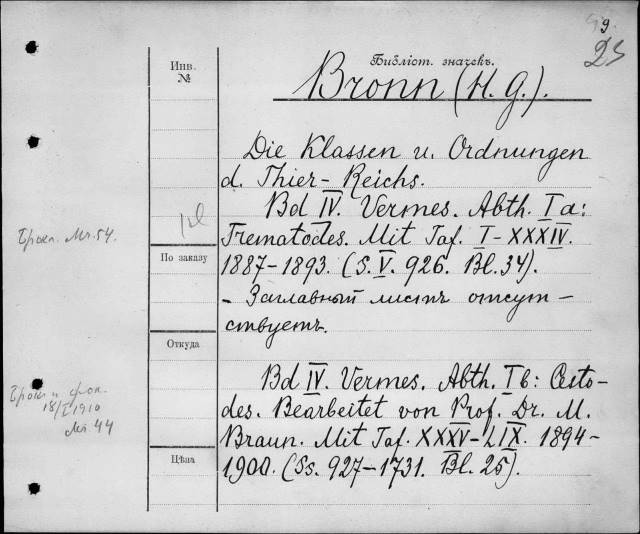 9
23
Библіот. значекъ.
Bronn (H. G.).
Инв.
№
Die Klassen u. Ordnungen
d. Thier-Reichs.
Bd IV. Vermes. Abth. I a:
Trematodes. Mit Taf. I-XXXIV.
1887-1893. (S. V. 926. Bl. 34).
- Заглавный листъ отсут-
ствуетъ.
По заказу
Откуда
Bd IV. Vermes. Abth. I b: Cesto-
des. Bearbeitet von Prof. Dr. M.
Braun. Mit Taf. XXXV-LIX. 1894-
1900. (Ss. 927-1731. Bl. 25).
Цѣна
54.
18/I 1910
44